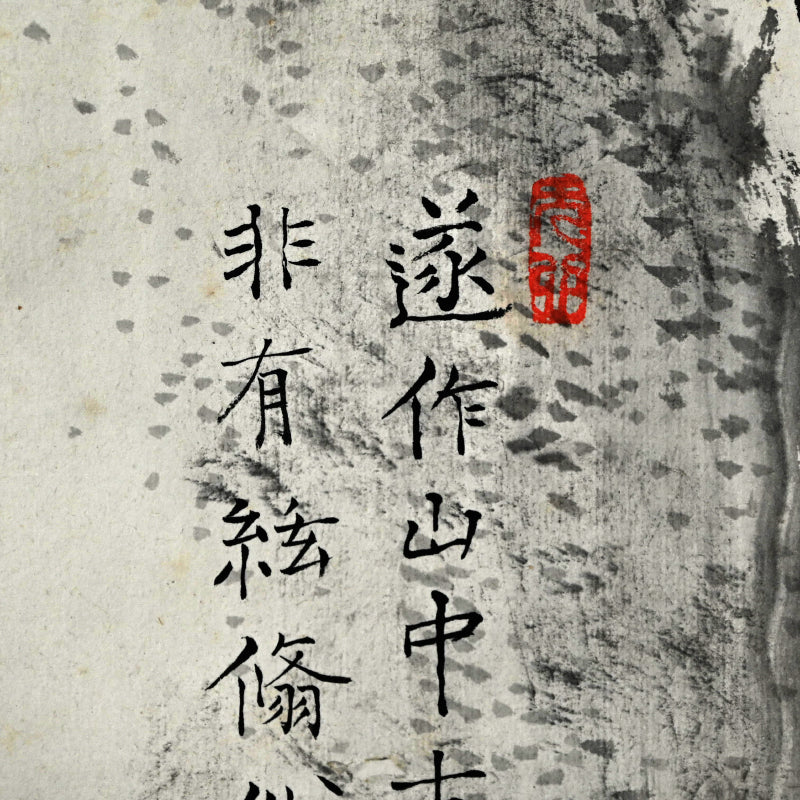 遂作山中
非有絃翛